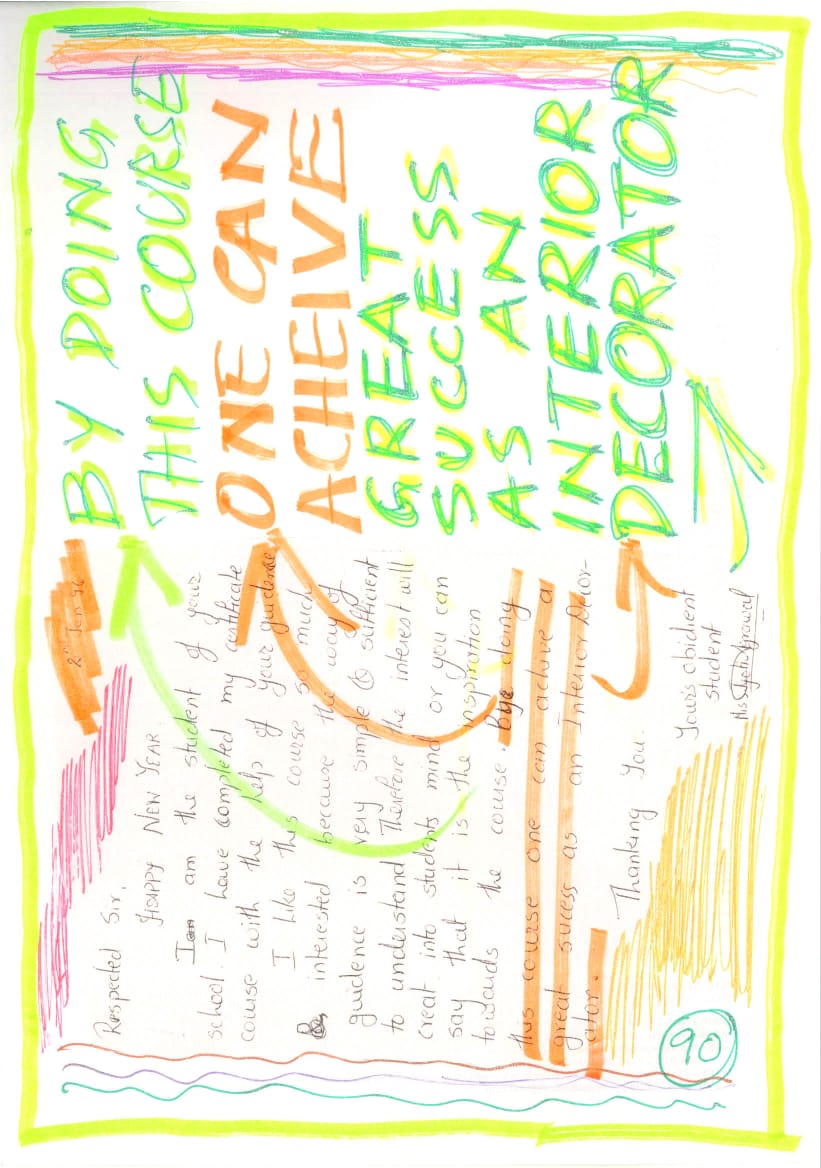 2nd Jan 96
Respected Sir,
HAPPY NEW YEAR.
I am the student of your
school. I have completed my certificate
course with the help of your guidense
I like this course so much
interested because the way of
guidence is very simple & sufficient
to understand Therefore the interest will
creat into students mind or you can
say that it is the inspiration
towards the course. By doing
this course one can achive a
great sucess as an Interior Decor-
ator.
Thanking You.
Your's obidient
student
Miss Agrawal
90
BY DOING
THIS COURSE
ONE CAN
ACHEIVE
GREAT
SUCCESS
AS AN
INTERIOR
DECORATOR